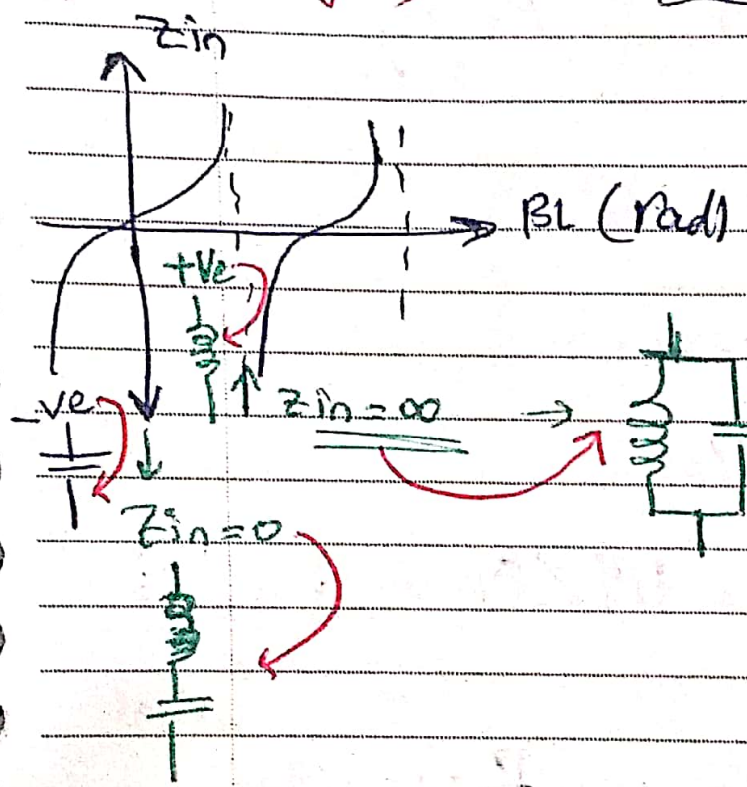 Zin
βL (rad)
+Ve
-ve
Zin = ∞ →
Zin = 0